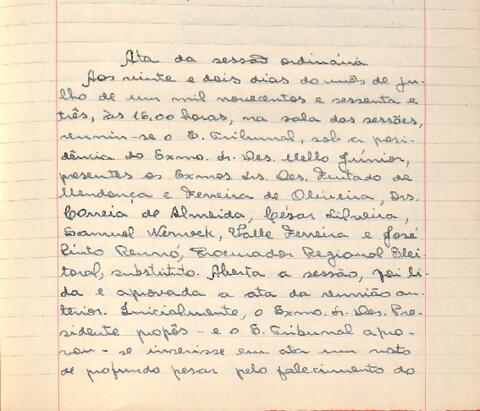 Ata da sessão ordinária
Aos vinte e dois dias do mês de ju-
lho de um mil novecentos e sessenta e
três, às 16,00 horas, na sala das sessões,
reuniu-se o E. Tribunal, sob a presi-
dência do Exmo. Sr. Des. Mello Júnior,
presentes os Exmos Srs. Des. Furtado de
Mendonça e Ferreira de Oliveira, Drs.
Correia de Almeida, César Silveira,
Samuel Werneck, Valle Ferreira e José
Pinto Rennó, Procurador Regional Elei-
toral, substituto. Aberta a sessão, foi li-
da e aprovada a ata da reunião an-
terior. Inicialmente, o Exmo. Sr. Des. Pre-
sidente propôs - e o E. Tribunal apro-
vou - se inserisse em ata um voto
de profundo pesar pelo falecimento do